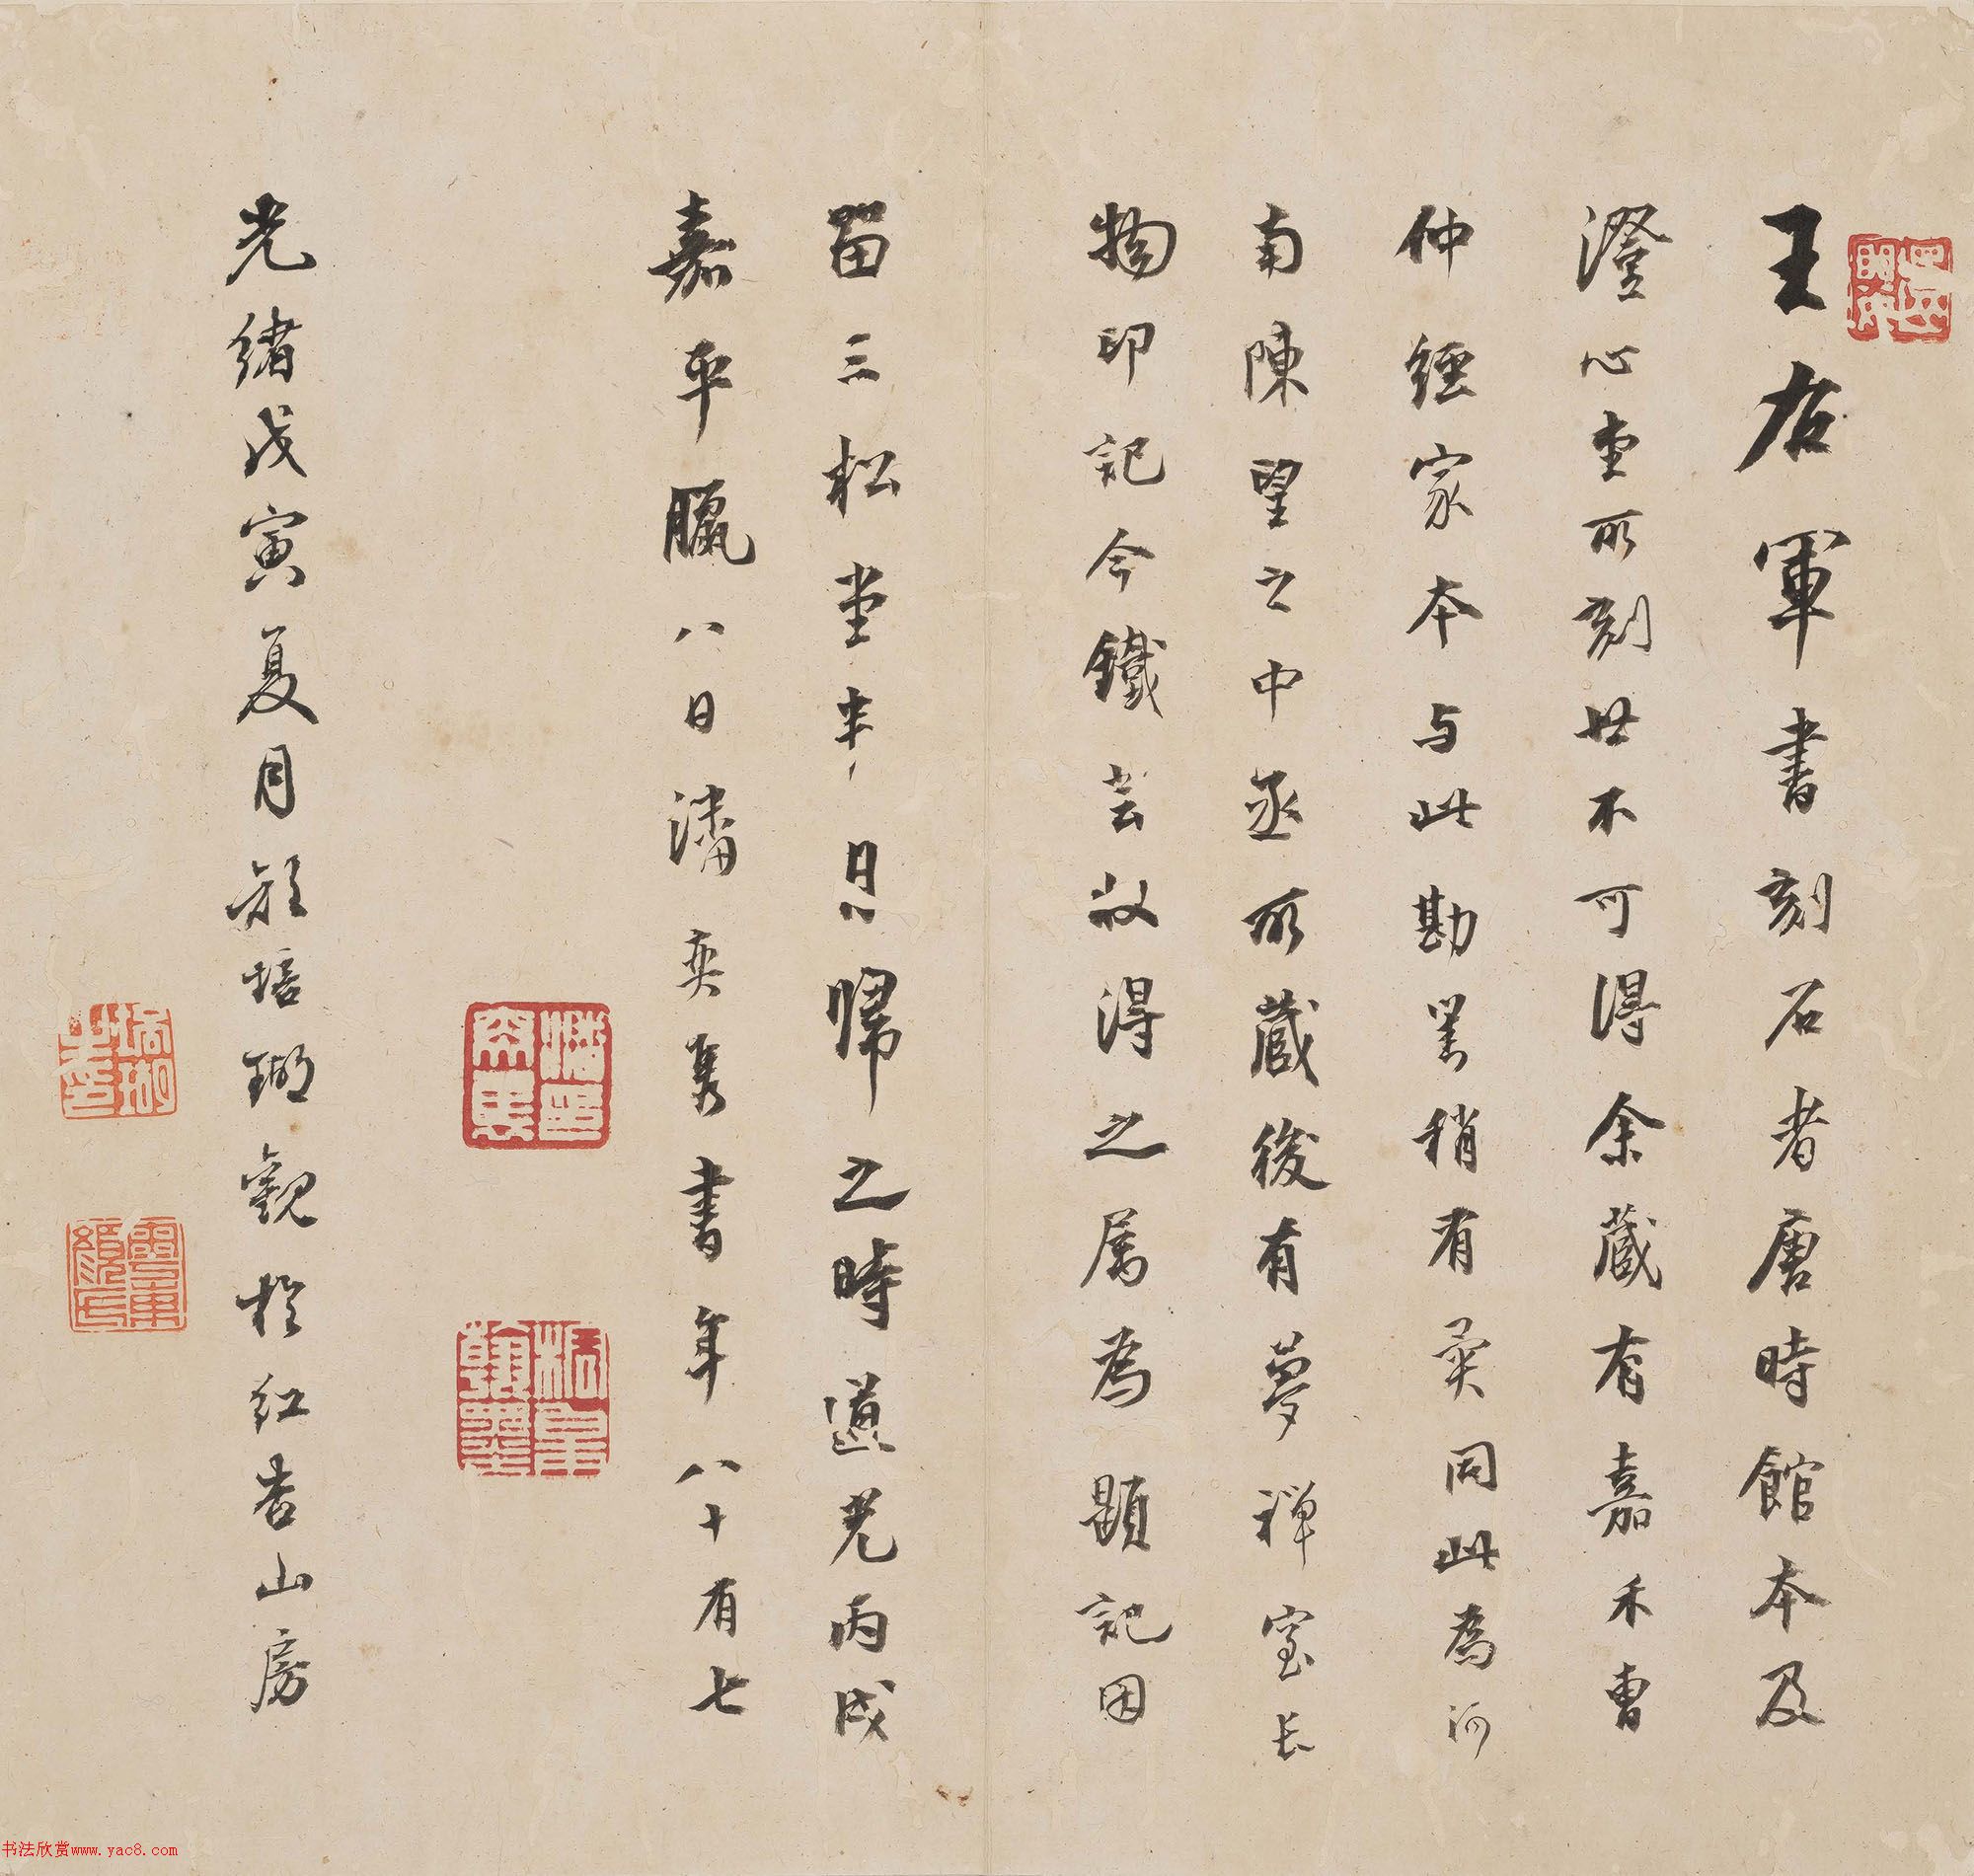 王右軍書刻石者唐時館本及
澄心堂所刻世不可得余藏有嘉禾曹
仲經家本与此勘異稍有奕同此為河
南陳望之中丞所藏後有夢禅室長
物印記今鐵芸叔得之属為題記因
留三松堂半月歸之時道光丙戌
嘉平臘八日潘奕雋書年八十有七
光緒戊寅夏月顧培瑚觀於紅杏山房
潘印奕雋
书法欣赏www.yac8.com